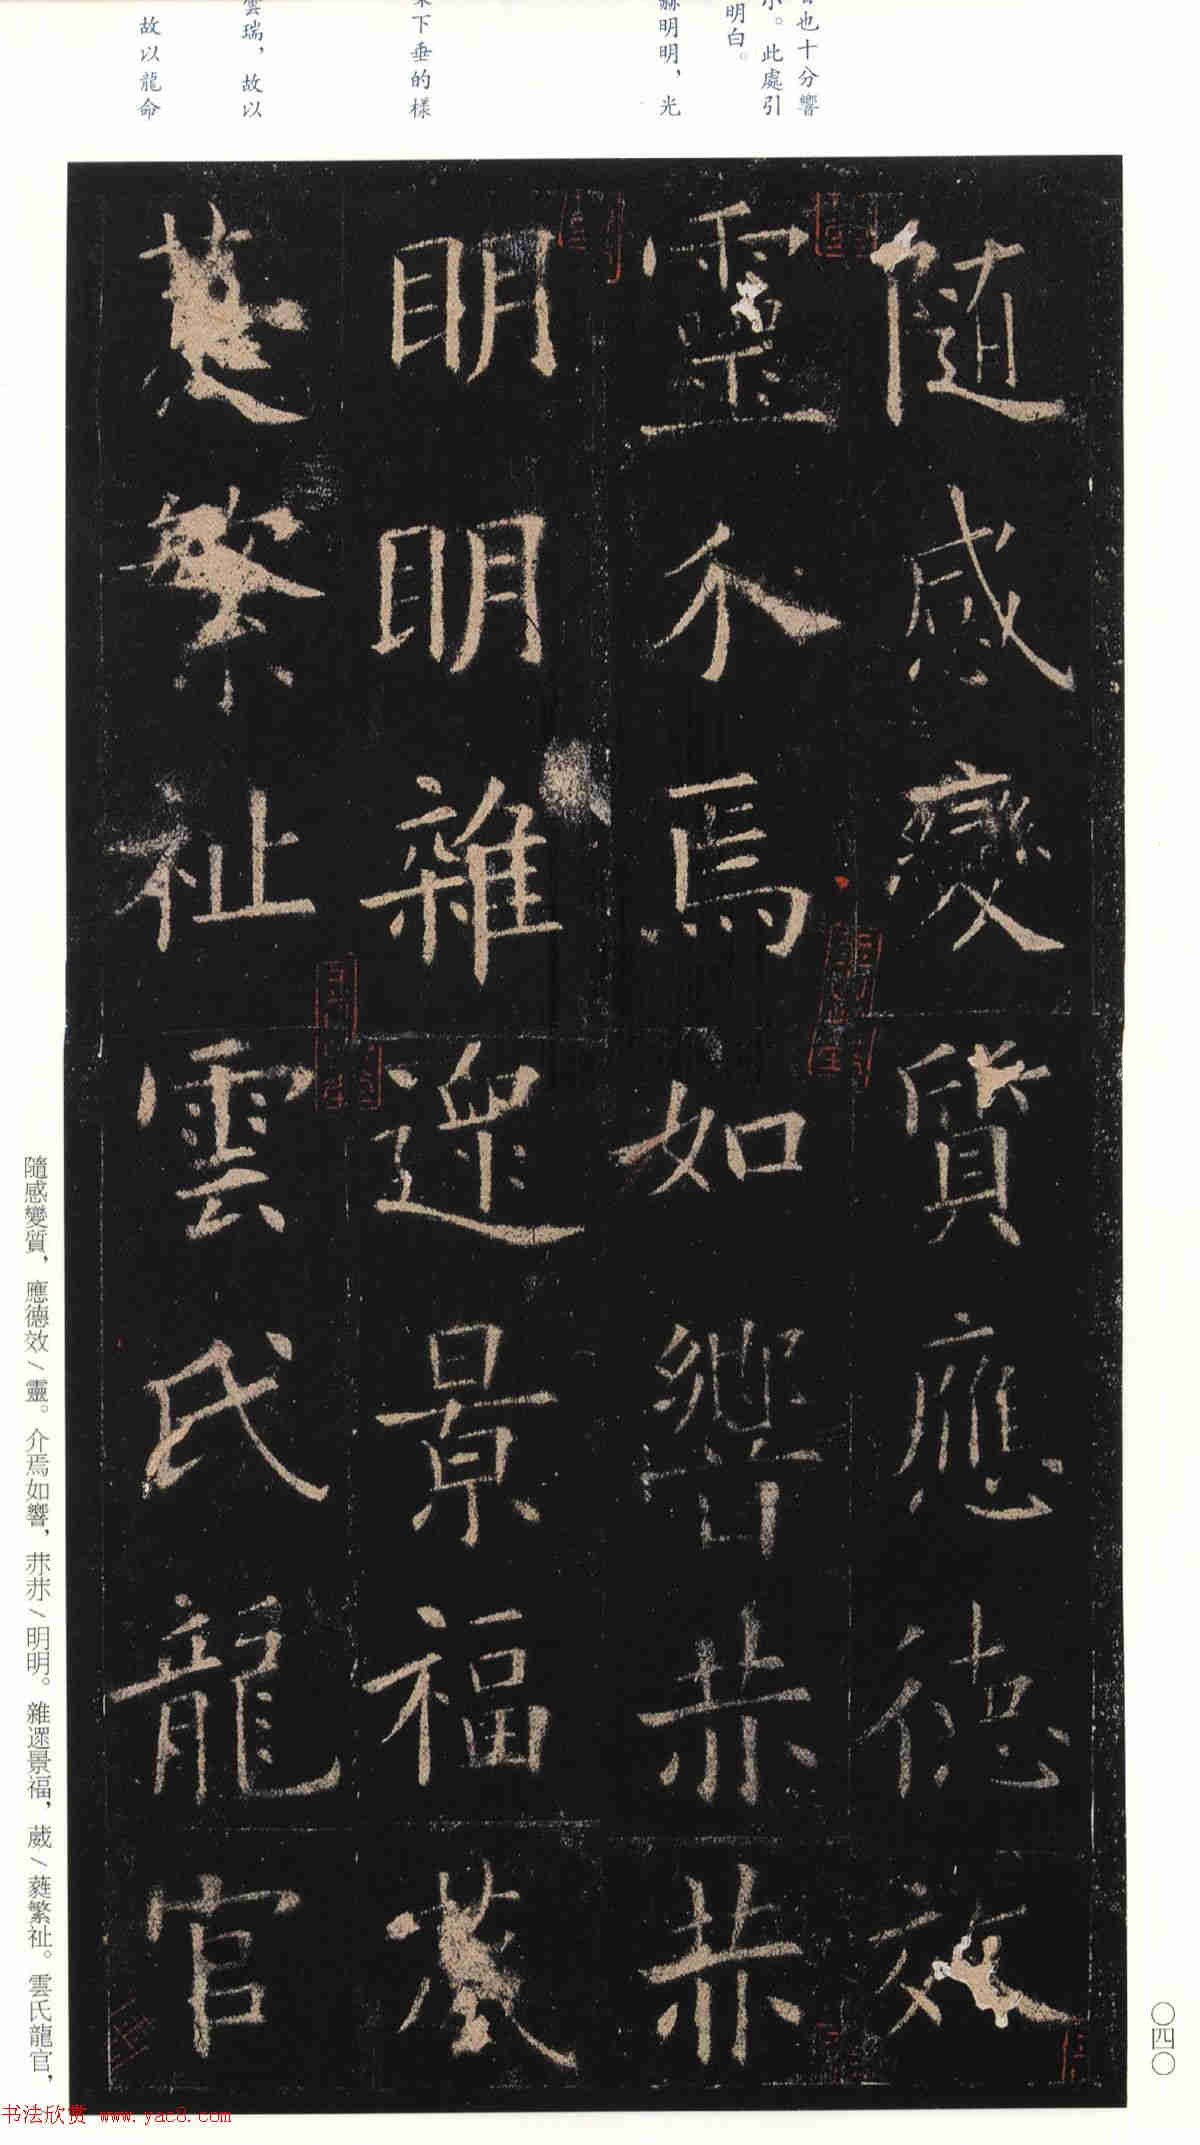 音也十分響
示。此處引
明白。
赫明明，光
下垂的樣
雲瑞，故以
故以龍命
随感變質應德效
靈不焉如響赫赫
明明雜遝景福葳
蕤繁祉雲氏龍官
隨感變質，應德效/靈。介焉如響，恭恭/明明。雜遝景福，葳/蕤繁祉。雲氏龍官，
〇四〇
书法欣赏 www.yac8.com